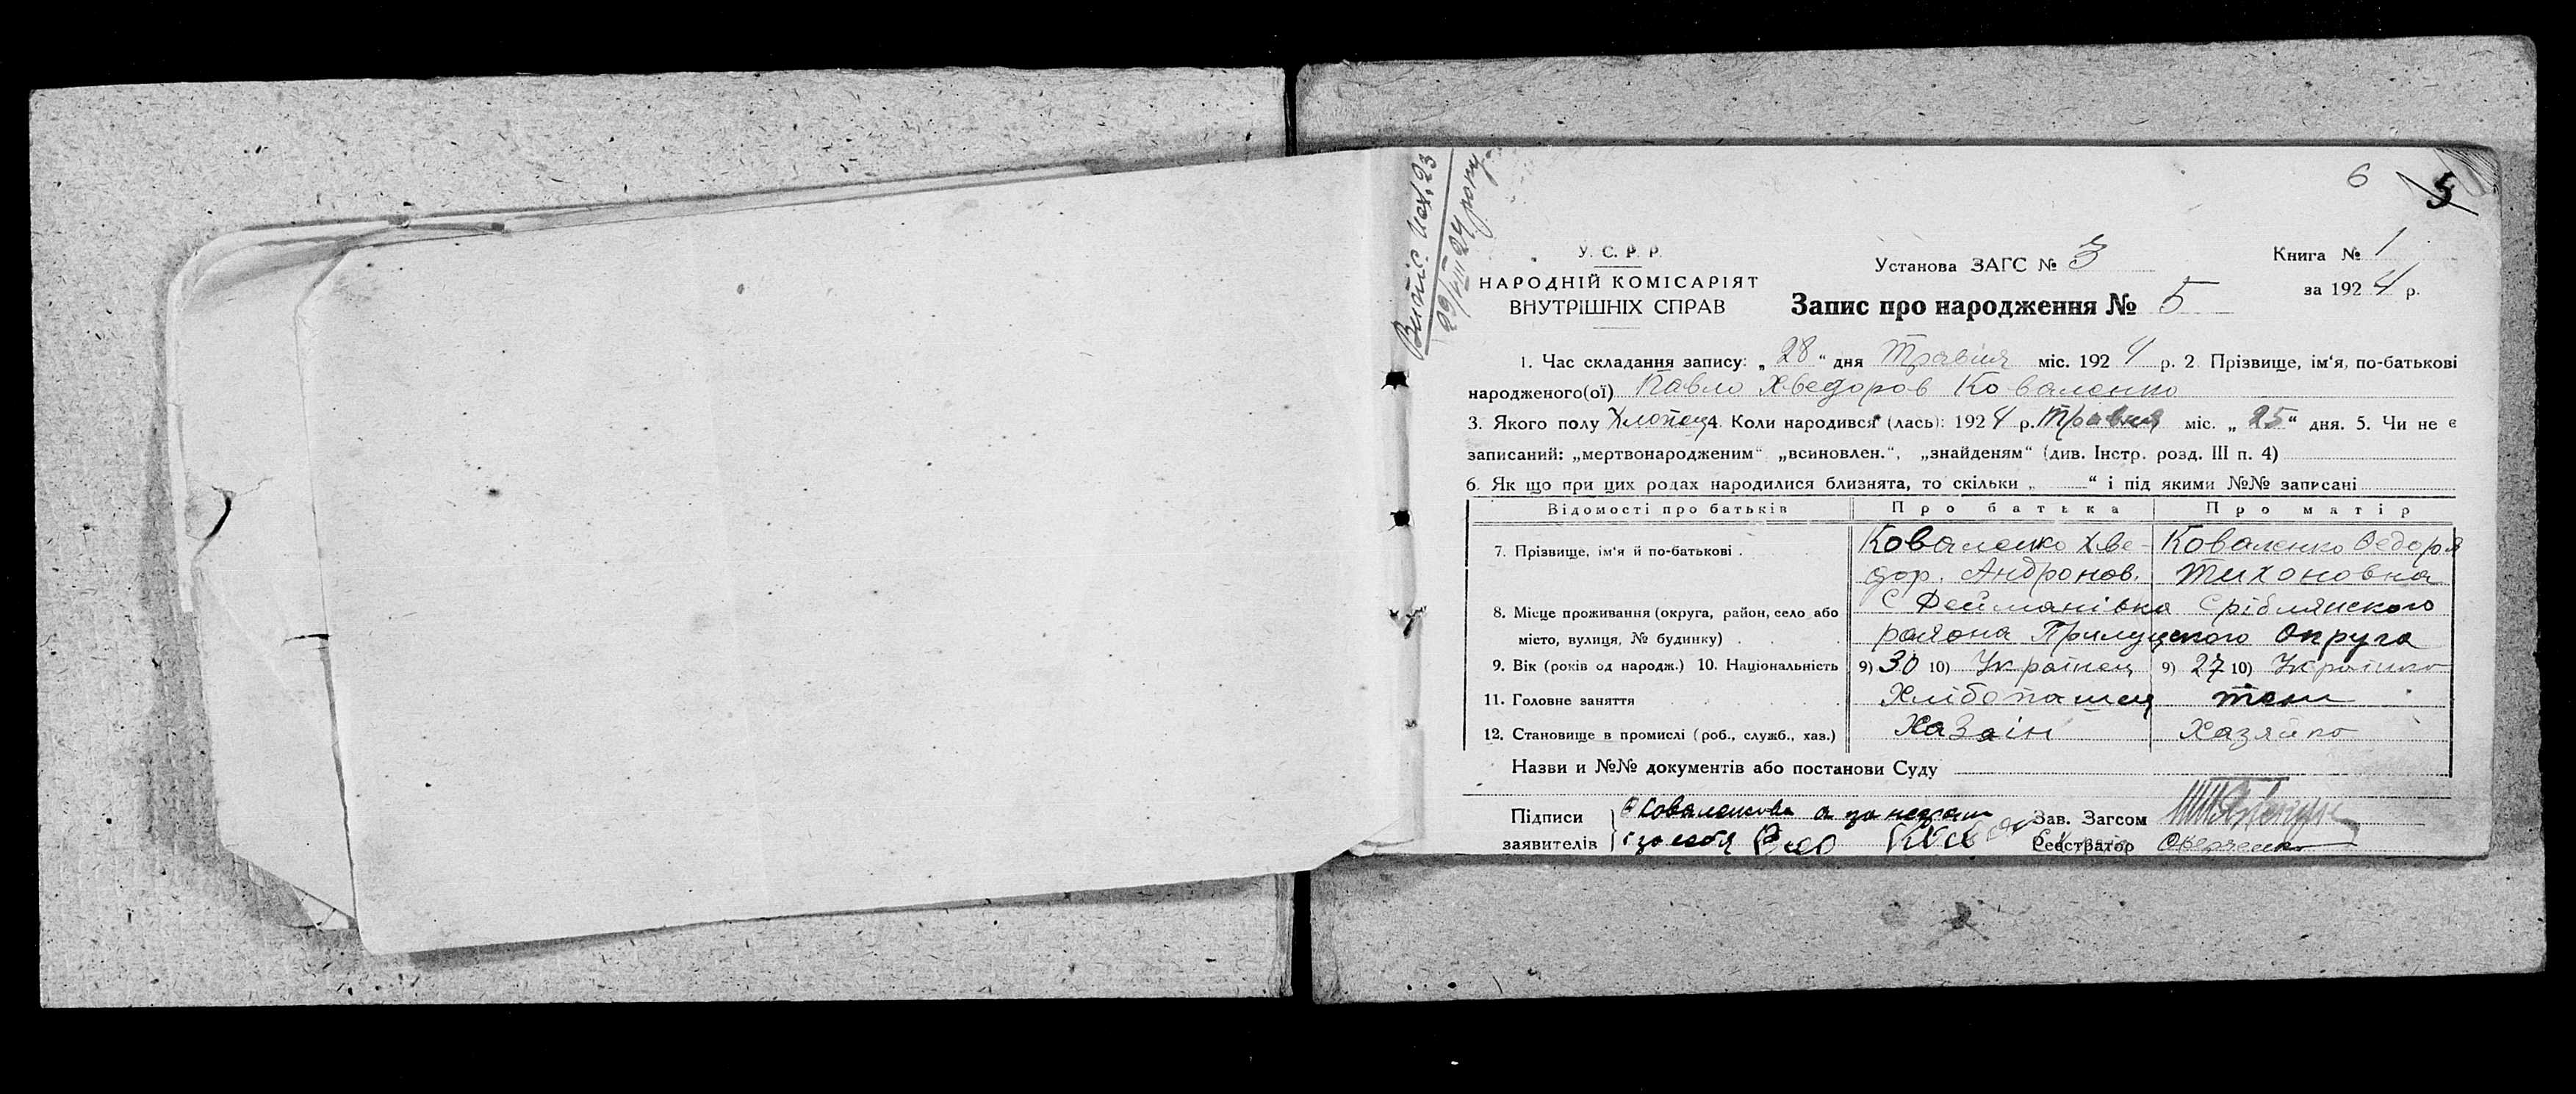 Випис Исх. 23
29/VIII 24 року
6 5
У. С. Р. Р.
НАРОДНІЙ КОМІСАРІЯТ
ВНУТРІШНІХ СПРАВ
Установа ЗАГС № 3
Книга № 1
за 1924 р.
Запис про народження № 5
1. Час складання запису: „28“ дня Травня міс. 1924 р. 2. Прізвище, ім'я, по-батькові
народженого(ої) Павло Хведоров Коваленко
3. Якого полу Хлопець 4. Коли народився (лась): 1924 р. Травня міс. „25“ дня. 5. Чи не є
записаний: „мертвонародженим“ „всиновлен.“, „знайденям“ (див. Інстр. розд. III п. 4)
6. Як що при цих родах народилися близнята, то скільки „ “ і під якими №№ записані
Відомості про батьків Про батька Про матір
7. Прізвище, ім'я й по-батькові . Коваленко Хве- Коваленко Федоря
дор. Андронов. Тихоновна
8. Місце проживання (округа, район, село або С Дейманівка Сріблянского
місто, вулиця, № будинку) . района Прилуцкого Округа
9. Вік (років од народж.) 10. Національність 9) 30 10) Українец 9) 27 10) Українка
11. Головне заняття Хлібопашец теж
12. Становище в промислі (роб., служб., хаз.) Хазяін Хазяйка
Назви и №№ документів або постанови Суду
Підписи Коваленкова а за Зав. Загсом
заявителів і за себя Реєстратор